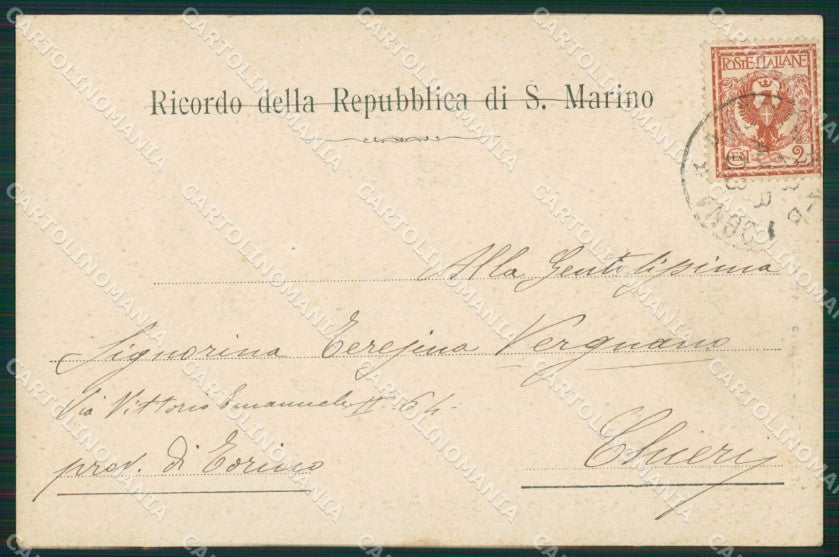 POSTE ITALIANE
Ricordo della Repubblica di S. Marino
Cmi 2
Alla Gentilissima
Signorina Teresina Vergnano
Via Vittorio Emanuele II 64.
Chieri
prov. di Torino
CARTOLINOMANIA